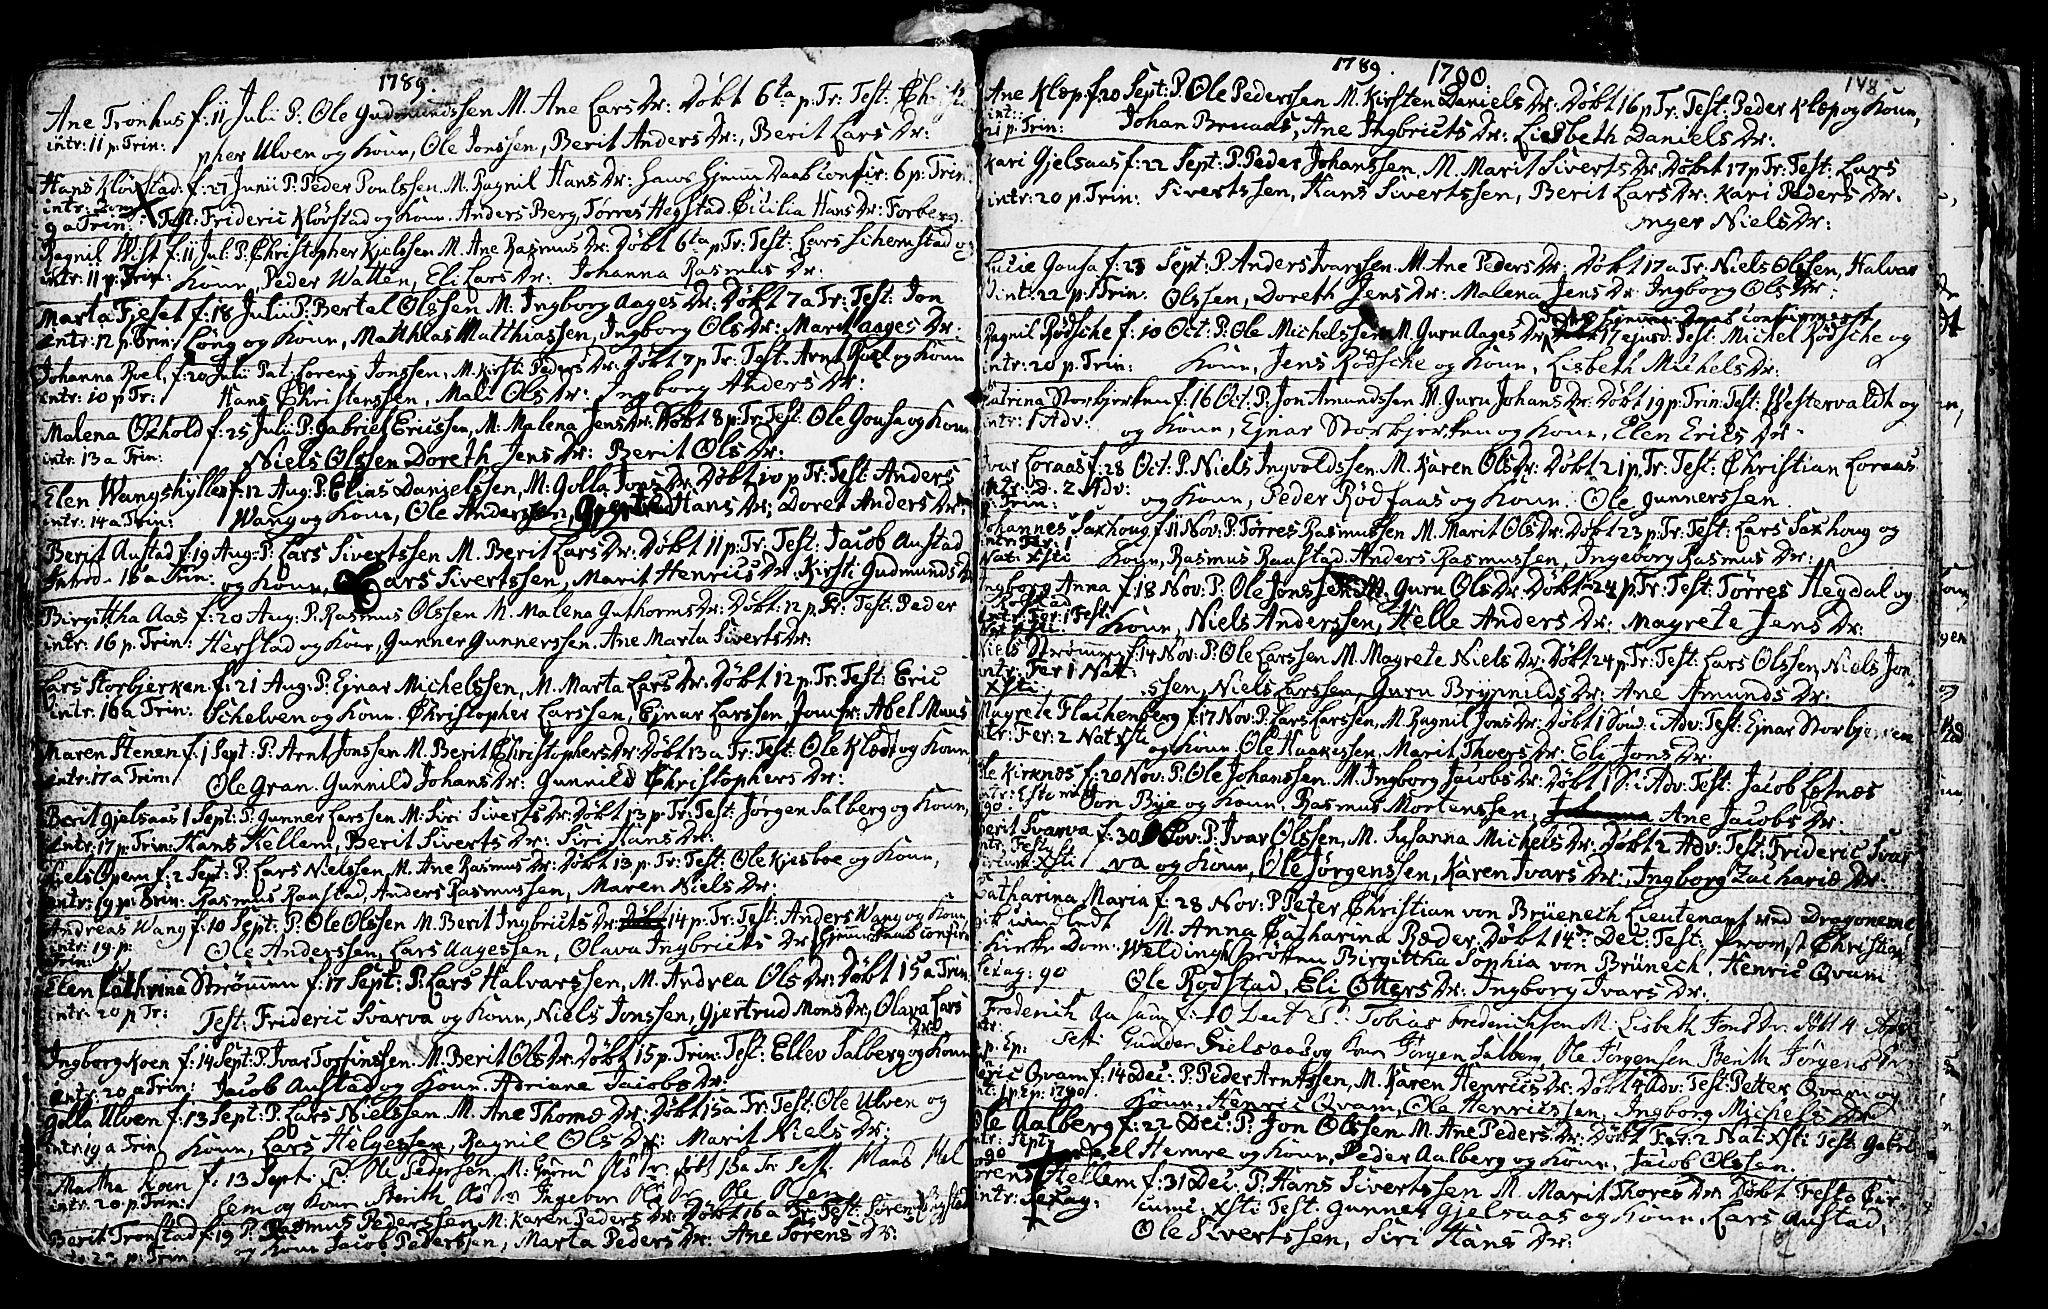 1789.
Ane Tronhus f: 11 Julii P. Ole Gudmundssen M. Ane Lars Dr: Døbt 6ta p: Tr: Test: Christo
intr: 11 p: Trin: pher Ulven og Kone, Ole Jonssen, Berit Anders Dr:, Berit Lars Dr:
Hans Kløvstad f: 27 Junii P: Peder Poulssen M. Ragnil Hans Dr: hans Daab confir: 6 p: Trin
intr: Dom
9 a Trin: Test: Frideric Kløvstad og Kone Anders Berg, Tørres Hegstad Cicilia Hans Dr: Forberg.
Ragnil Wist f: 11 Jul: P: Christopher Kjelssen M. Ane Rasmus Dr: Døbt 6ta p: Tr: Test: Lars Schemstad og
intr: 11 p: Trin: Kone, Peder Watten, Eli Lars Dr: Johanna Rasmus Dr:
Marta Fjeset f: 18 Julii P: Bertel Olssen M. Ingborg Aages Dr: Døbt 7 a Tr: Test: Jon
intr: 12 p: Trin: Lóng og Kone, Matthias Matthiassen, Ingborg Ols Dr: Marit Aages Dr:
Johanna Roel f: 20 Julii Pat: Lorens Jonssen, M. Kirsti Peders Dr: Døbt 7 p Tr: Test: Arnt Roel og Kone
intr: 10 p Tr: Hans Christenssen, Mali Ols Dr: Ingborg Anders Dr:
Malena Oxhold f: 25 Julii P: Gabriel Ericssen, M: Malena Jens Dr: Døbt 8 p: Tr: Test: Ole Gousa og Kone
intr: 13 a Trin: Niels Olssen Doreth Jens Dr: Berit Ols Dr:
Elen Wangshyllen f: 12 Aug: P: Elias Danjelssen, M: Golla Jons Dr: Døbt 10 p Tr: Test: Anders
intr: 14 a Trin: Wang og Kone, Ole Anderssen, Gjertrud Hans Dr: Doret Anders Dr:
Berit Austad f: 19 Aug: P: Lars Sivertssen M. Berit Lars Dr: Døbt 11 p: Tr: Test: Jacob Austad
Introd. 15 a Trin: og Kone, Lars Sivertssen, Marit Henrics Dr: Kirsti Gudmunds Dr
Birgittha Aas f: 20 Aug: P: Rasmus Olssen M. Malena Guthorms Dr: Døbt: 12 p Tr: Test: Peder
intr: 16 p: Trin: Herstad og Kone, Gunner Gunnerssen. Ane Marta Siverts Dr:
Lars Storbjerken f: 21 Aug: P: Ejnar Michelssen, M. Marta Lars Dr: Døbt 12 p: Tr: Test: Eric
intr: 16 a Trin: Schelven og Kone. Christopher Larssen, Ejnar Larssen Jomfr: Abel Muus
Maren Stenen f: 1 Sept: P: Arnt Jonssen M. Berit Christophers Dr: Døbt 13 a Tr: Test: Ole Klæbt og Kone,
intr: 17 a Trin: Ole Gran. Gunnild Johans Dr: Gunnild Christophers Dr:
Berit Gjelsaas 1 Sept: P: Gunner Larssen M. Siri Siverts Dr: Døbt 13 p: Tr: Test: Jørgen Salberg og Kone,
intr: 17 p: Trin: Hans Hellem, Berit Siverts Dr: Siri Hans Dr:
Niels Opem f: 2 Sept: P: Lars Nielssen M. Ane Rasmus Dr: Døbt 13 p: Tr: Test: Ole Kjesboe og Kone,
intr: 19 p: Trin: Rasmus Raastad, Anders Rasmussen, Maren Niels Dr:
Andreas Wang f: 10 Sept: P: Ole Olssen M. Berit Ingbricts Dr: 14 p: Tr: Test: Anders Wang og Kone
intr: 19 p: Ole Anderssen, Lars Aagessen, Olava Ingbricts Dr: hjemme Daab confir:
Trin:
Elen Cathrina Strømmen f: 17 Sept: P: Lars Halvarssen, M. Andrea Ols Dr: Døbt 15 a Trin
intr: 20 p Tr: Test: Frideric Svarva og Kone, Niels Jonssen, Gjertrud Mons Dr:, Olava Lars
Dr:
Ingborg Koen f: 14 Sept: P. Ivar Torfinssen. M. Berit Ols Dr: Døbt 15 p. Trin: Test: Ellev Salberg og Kone
intr: 20 a Trin: Jacob Austad og Kone. Adriane Jacobs Dr:
Golla Ulven f: 13 Sept: P. Lars Nielssen M. Ane Thomæ Dr: Døbt 15 a Tr: Test: Ole Ulven og
intr: 19 a Trin: Kone, Lars Helgessen, Ragnil Ols Dr: Marit Niels Dr:
Martha Koen f: 13 Sept: P. Ole Pedersen, M: Guru Ols Dr: døbt 15 a Tr: Test. Hans Hel
intr: 20 p. Trin: lem og Kone Berith Ols Dr Ingebor Ols Dr. Ole Olsen
Berit Tronstad f: 19 P: Rasmus Pederssen, M. Karen Peders Dr: Døbt 16 a Tr: Test: Søren Bustad
og Kone Jacob Pederssen, Marta Peders Dr: Ane Sørens Dr:
1789. 1790. 148
Ane Klæp f: 20 Sept: P. Ole Pederssen M. Kirsten Daniels Dr: Døbt 16 p Tr: Test: Peder Klæp og Kone,
intr:
21 p: Trin: Johan Bruaas, Ane Ingbricts Dr: Liesbeth Daniels Dr:
Kari Gjelsaas f: 22 Sept: P. Peder Johanssen, M. Marit Siverts Dr: Døbt 17 p Tr: Test: Lars
intr: 20 p: Trin: Sivertssen, Hans Sivertssen, Berit Lars Dr: Kari Peders Dr.
Inger Niels Dr:
Lucie Gousa f: 23 Sept: P. Anders Ivarssen. M. Ane Peders Dr: Døbt 17 a Tr: Niels Olssen, Halvar
intr: 22 p: Trin: Olssen, Doreth Jens Dr: Malena Jens Dr: Ingborg Ols Dr:
hvis hjemme Daab confirmerst
Ragnil Rødsche f: 10 Oct: P. Ole Michelssen M. Guru Aages Dr: 17 ejusd: Test: Michel Rødsche og
intr: 20 p: Trin: Kone, Jens Rødsche og Kone, Lisbeth Michels Dr:
Katrina Storbjerken f: 16 Oct: P. Jon Amundssen M. Guru Johans Dr: Døbt 19 p: Trin: Test: Westervaldt og
intr: 1 Adv: og Kone, Ejnar Storbjerken og Kone, Elen Erics Dr.
Ivar Loraas f: 28 Oct: P. Niels Ingvoldssen. M. Karen Ols Dr: Døbt 21 p: Tr: Test: Christian Loraas
intr: D. 2 Adv: og Kone, Peder Rødfaas og Kone. Ole Gunnerssen
Johannes Saxhoug f: 11 Nov: P: Tørres Rasmussen M. Marit Ols Dr: Døbt 23 p: Tr: Test: Lars Saxhoug og
Nat: Xsti Kone, Rasmus Raastad. Anders Rasmussen, Ingeborg Rasmus Dr:
Ingborg Anna f: 18 Nov: P: Ole Jonssen M. Guru Ols Dr: Døbt 24 p: Tr: Test: Tørres Hegdal og
Kone, Niels Anderssen, Helle Anders Dr: Magrete Jens Dr:
Niels Strømmen f: 14 Nov: P: Ole Larssen M. Magrete Niels Dr: Døbt 24 p: Tr: Test: Lars Olssen, Niels Jon-
intr: Fer 1 Nat:
Xsti ssen, Niels Larssen, Guru Brynnilds Dr: Ane Amunds Dr:
Magrete Flachenberg f: 17 Nov: P: Lars Larssen, M. Ragnil Jons Dr: Døbt 1 Sønd: i Adv: Test: Ejnar Storbjerken
intr: Fer: 2 Nat Xsti og Kone Ole Haakessen, Marit Thoers Dr: Eli Jons Dr:
Ole Kirknæs f: 20 Nov: P: Ole Johanssen. M. Ingborg Jacobs Dr: Døbt 1 S: i Adv: Test: Jacob Letnæs
intr: Esto mihi
90 Jon Bye og Kone. Rasmus Mortenssen, Ane Jacobs Dr.
Berit Svarva f: 30 Nov: P: Ivar Olssen, M. Susanna Michels Dr: Døbt 2 Adv: Test: Frideric Svar
intr: Festo
Circumc: Xsti va og Kone, Ole Jørgenssen, Karen Ivars Dr:, Ingborg Zachariæ Dr.
Catharina Maria f: 28 Nov: P. Peter Christian von Brüenech Lieutenant ved Dragonerne
gik ind udi M. Anna Catharina Ræder, Døbt 14de Dec: Test: Promst Christian
Kirke Dom: Weldingh Frötten Birgittha Sophia von Brünech. Henric Qvam
Sexag: 90 Ole Rodstad, Eli Otters Dr: Ingborg Ivars Dr:
Frederik f: 10 Dec: P: Tobias Frederichsen M. Lisbeth Jons Dr. døbt 4 Adv:
p. Ep: Test: Gunder Gielsaas og Kone Jørgen Salberg, Ole Jørgensen Berith Jørgens Dr
Eric Qvam f: 14 Dec: P: Peder Arntssen, M. Karen Henrics Dr: Døbt 4 Adv: Test: Petter Qvam og
1790. Kone, Henric Qvam, Ole Henricssen, Ingborg Michels Dr
Ole Aalberg f: 22 Dec: P. Jon Olssen M. Ane Peders Dr: Døbt Fer: 2 Nat: Xsti Test: Gabri-
intr: Sept:
90 el Hemre og Kone, Peder Aalberg og Kone, Jacob Olssen.
Lorens Hellem f: 31 Dec: P: Hans Sivertssen M. Marit Thores Dr: Døbt Festo Cir-
intr: Sexag: cumc: Xsti Test: Gunner Gjelsaas og Kone, Lars Austad,
Ole Sivertssen, Siri Hans Dr: